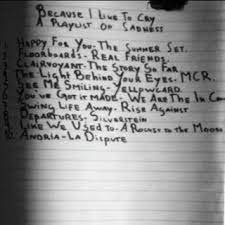 Because I Like To Cry
A Playlist of Sadness
Happy For You- The Summer Set.
Floorboards- Real Friends.
Clairvoyant- The Story So Far
The Light Behind Your Eyes- MCR.
See Me Smiling- Yellowcard
You've Got it Made- We Are The In
Swing Life Away- Rise Against
Departures- Silverstein
Like We Used To- A Rocket to the Moon
Andria- La Dispute